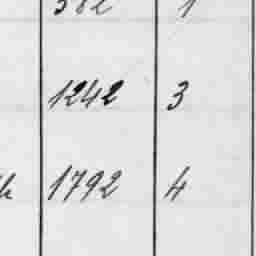 382 1
1242 3
1792 4